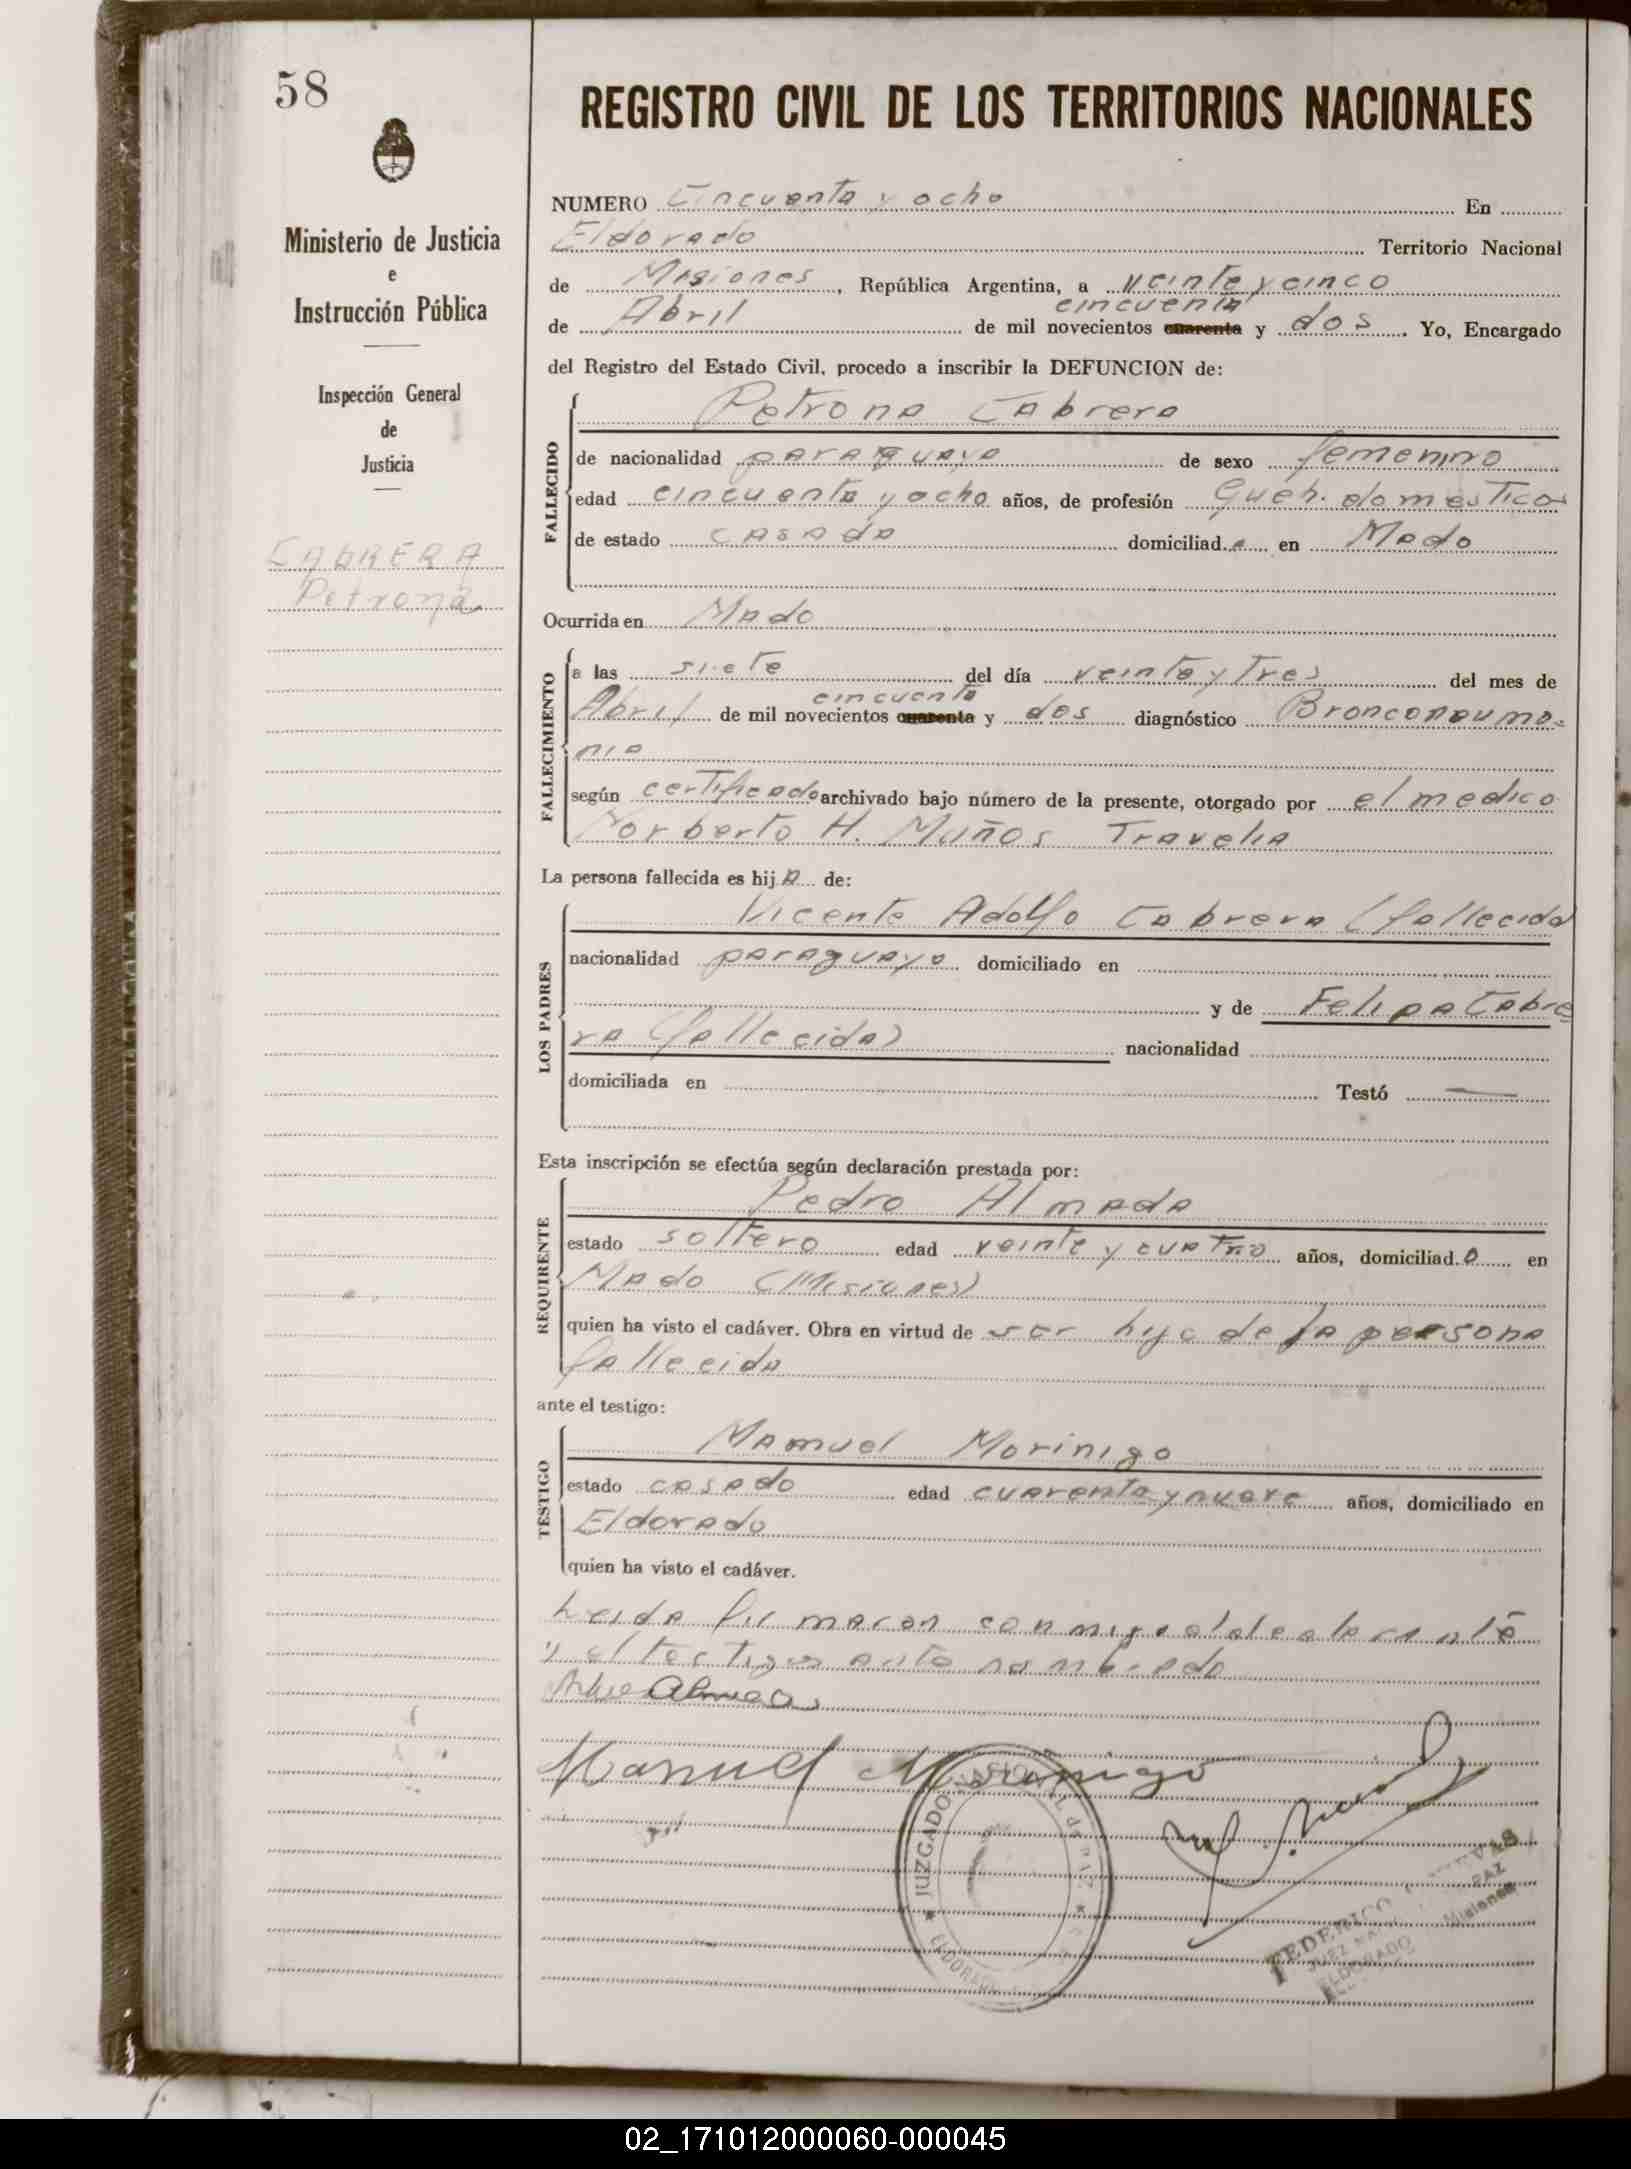 58
REGISTRO CIVIL DE LOS TERRITORIOS NACIONALES
Ministerio de Justicia
e
Instrucción Pública
Inspección General
de
Justicia
CABRERA
Petrona
NUMERO Cincuenta y ocho En
Eldorado Territorio Nacional
de Misiones, República Argentina, a veinte y cinco
cincuenta
de Abril de mil novecientos cuarenta y dos. Yo, Encargado
del Registro del Estado Civil, procedo a inscribir la DEFUNCION de:
FALLECIDO
Petrona Cabrera
de nacionalidad paraguaya de sexo femenino
edad cincuenta y ocho años, de profesión Queh. domesticos
de estado casada domiciliad a en Mado
Ocurrida en Mado
FALLECIMIENTO
a las siete del día veinte y tres del mes de
cincuenta
Abril de mil novecientos cuarenta y dos diagnóstico Bronconeumo-
nia
según certificado archivado bajo número de la presente, otorgado por el medico
Norberto H. Muños Travelia
La persona fallecida es hij a de:
LOS PADRES
Vicente Adolfo Cabrera (fallecido
nacionalidad paraguayo domiciliado en
y de Felipa Cabre
ra (fallecida) nacionalidad
domiciliada en Testó —
Esta inscripción se efectúa según declaración prestada por:
REQUIRENTE
Pedro Almada
estado soltero edad veinte y cuatro años, domiciliad o en
Mado (Misiones)
quien ha visto el cadáver. Obra en virtud de ser hijo de la persona
fallecida
ante el testigo:
TESTIGO
Mamuel Morinigo
estado casado edad cuarenta y nueve años, domiciliado en
Eldorado
quien ha visto el cadáver.
Leida firmaran conmigo el declarante
y el testigo ante nombrado
Manuel Morinigo
JUZGADO NACIONAL de PAZ
ELDORADO
FEDERICO
JUEZ NACIONAL PAZ
ELDORADO Misiones
02_171012000060-000045